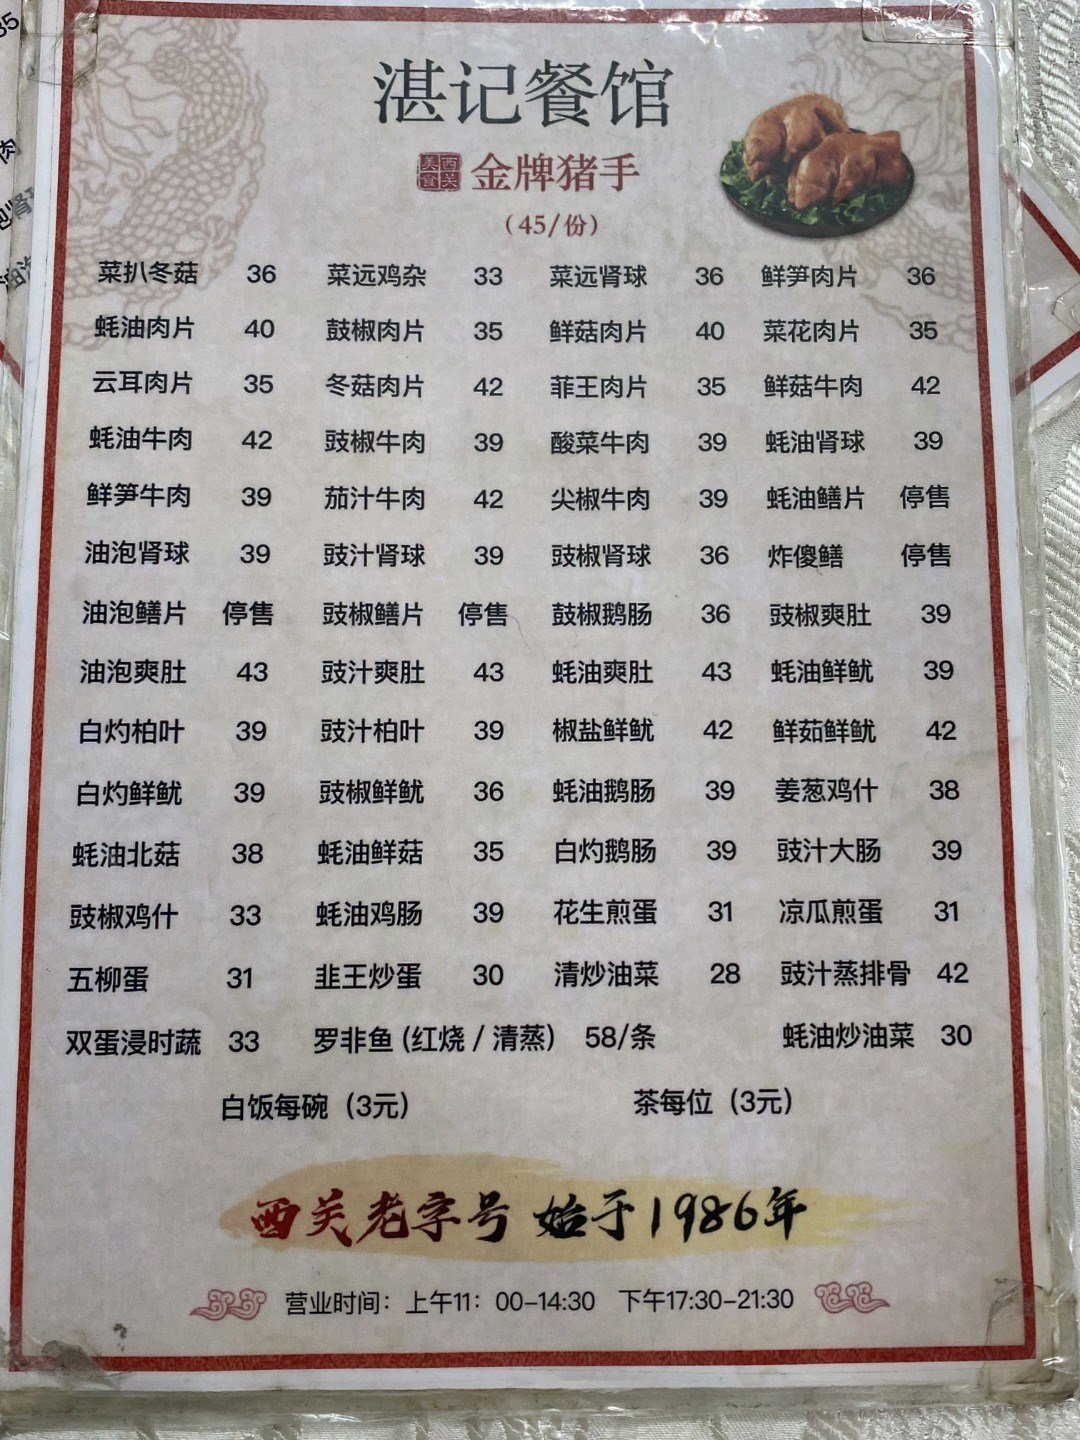 湛记餐馆
西关美食 金牌猪手
（45/份）
菜扒冬菇 36 菜远鸡杂 33 菜远肾球 36 鲜笋肉片 36
蚝油肉片 40 鼓椒肉片 35 鲜菇肉片 40 菜花肉片 35
云耳肉片 35 冬菇肉片 42 菲王肉片 35 鲜菇牛肉 42
蚝油牛肉 42 豉椒牛肉 39 酸菜牛肉 39 蚝油肾球 39
鲜笋牛肉 39 茄汁牛肉 42 尖椒牛肉 39 蚝油鳝片 停售
油泡肾球 39 豉汁肾球 39 豉椒肾球 36 炸傻鳝 停售
油泡鳝片 停售 豉椒鳝片 停售 鼓椒鹅肠 36 豉椒爽肚 39
油泡爽肚 43 豉汁爽肚 43 蚝油爽肚 43 蚝油鲜鱿 39
白灼柏叶 39 豉汁柏叶 39 椒盐鲜鱿 42 鲜茹鲜鱿 42
白灼鲜鱿 39 豉椒鲜鱿 36 蚝油鹅肠 39 姜葱鸡什 38
蚝油北菇 38 蚝油鲜菇 35 白灼鹅肠 39 豉汁大肠 39
豉椒鸡什 33 蚝油鸡肠 39 花生煎蛋 31 凉瓜煎蛋 31
五柳蛋 31 韭王炒蛋 30 清炒油菜 28 豉汁蒸排骨 42
双蛋浸时蔬 33 罗非鱼（红烧 / 清蒸） 58/条 蚝油炒油菜 30
白饭每碗（3元） 茶每位（3元）
西关老字号 始于1986年
营业时间：上午11：00-14:30 下午17:30-21:30